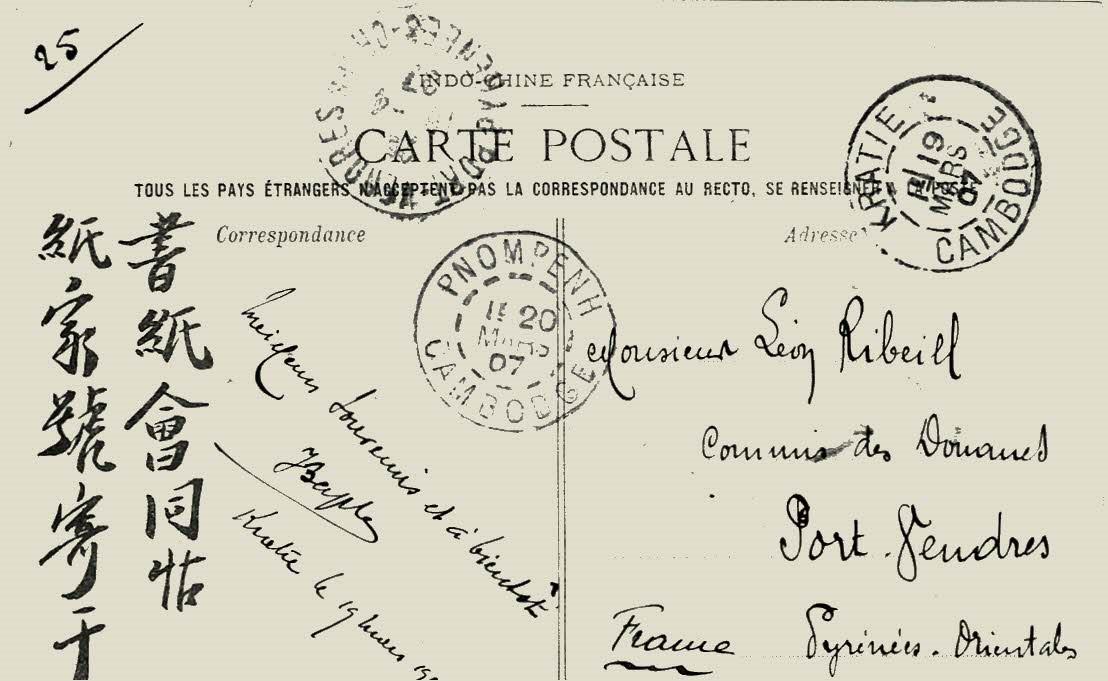 25
INDO-CHINE FRANÇAISE
CARTE POSTALE
TOUS LES PAYS ÉTRANGERS N'ACCEPTENT PAS LA CORRESPONDANCE AU RECTO, SE RENSEIGNER A LA POSTE
Correspondance
Adresse
KRATIE
19
MARS
07
CAMBODGE
PNOMPENH
20
MARS
07
CAMBODGE
書紙會同怗
紙家號寄干
Meilleurs souvenirs et à bientôt
Kratie le 19 mars
Monsieur Léon Ribeill
Commis des Douanes
Port-Vendres
Pyrénées-Orientales
France